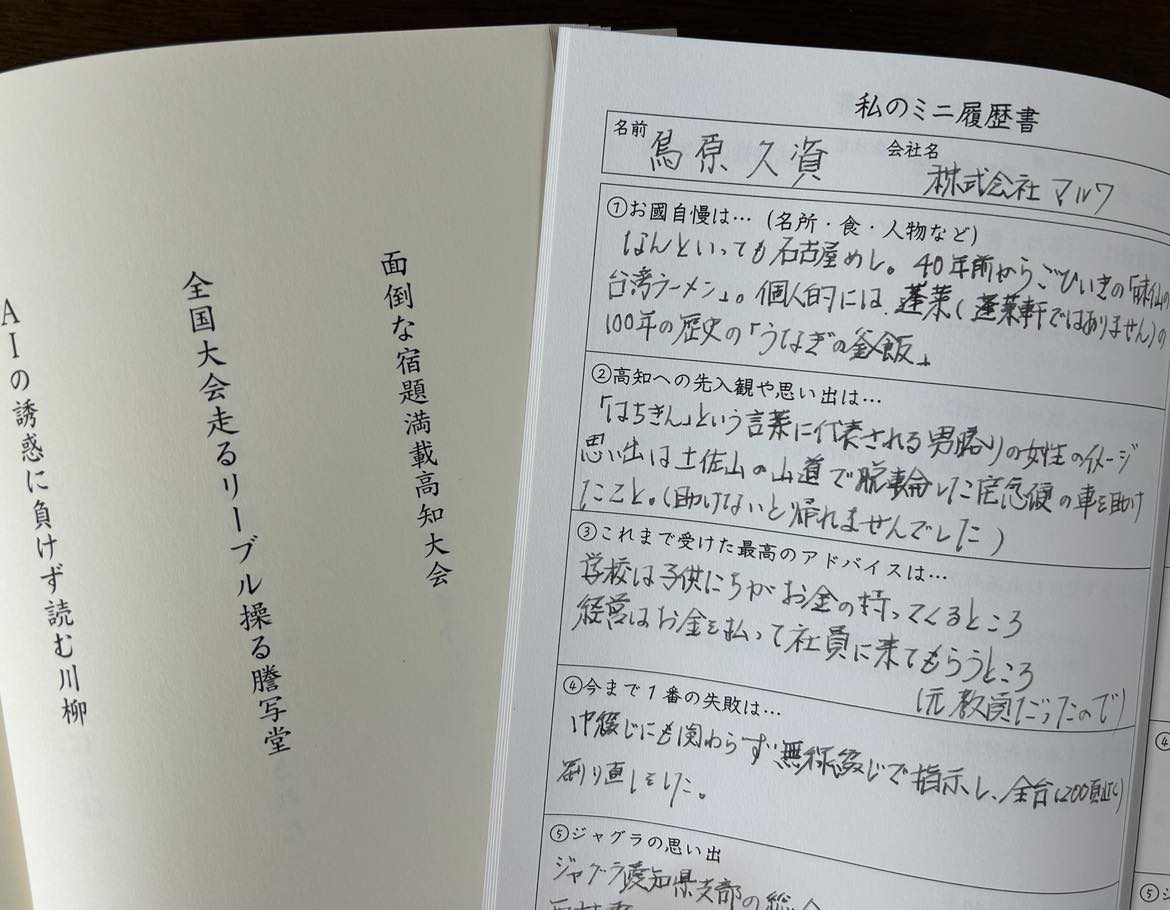 面倒な宿題満載高知大会
全国大会走るリーブル操る謄写堂
AIの誘惑に負けず読む川柳
私のミニ履歴書
名前 鳥原久資 会社名 株式会社マルワ
①お國自慢は…（名所・食・人物など）
なんといっても名古屋めし。40年前からごひいきの「味仙の
台湾ラーメン」。個人的には、蓬莱（蓬莱軒ではありません）の
100年の歴史の「うなぎの釜飯」
②高知への先入観や思い出は…
「はちきん」という言葉に代表される男勝りの女性のイメージ
思い出は土佐山の山道で脱輪した宅急便の車を助け
たこと。（助けないと帰れませんでした）
③これまで受けた最高のアドバイスは…
学校は子供たちがお金の持ってくるところ
経営はお金を払って社員に来てもらうところ
（元教員だったので）
④今まで1番の失敗は…
中綴じにも関わらず無線綴じで指示し、全台（200頁近く）
刷り直しをした。
⑤ジャグラの思い出
ジャグラ愛知県支部の総会
④
⑤ジ